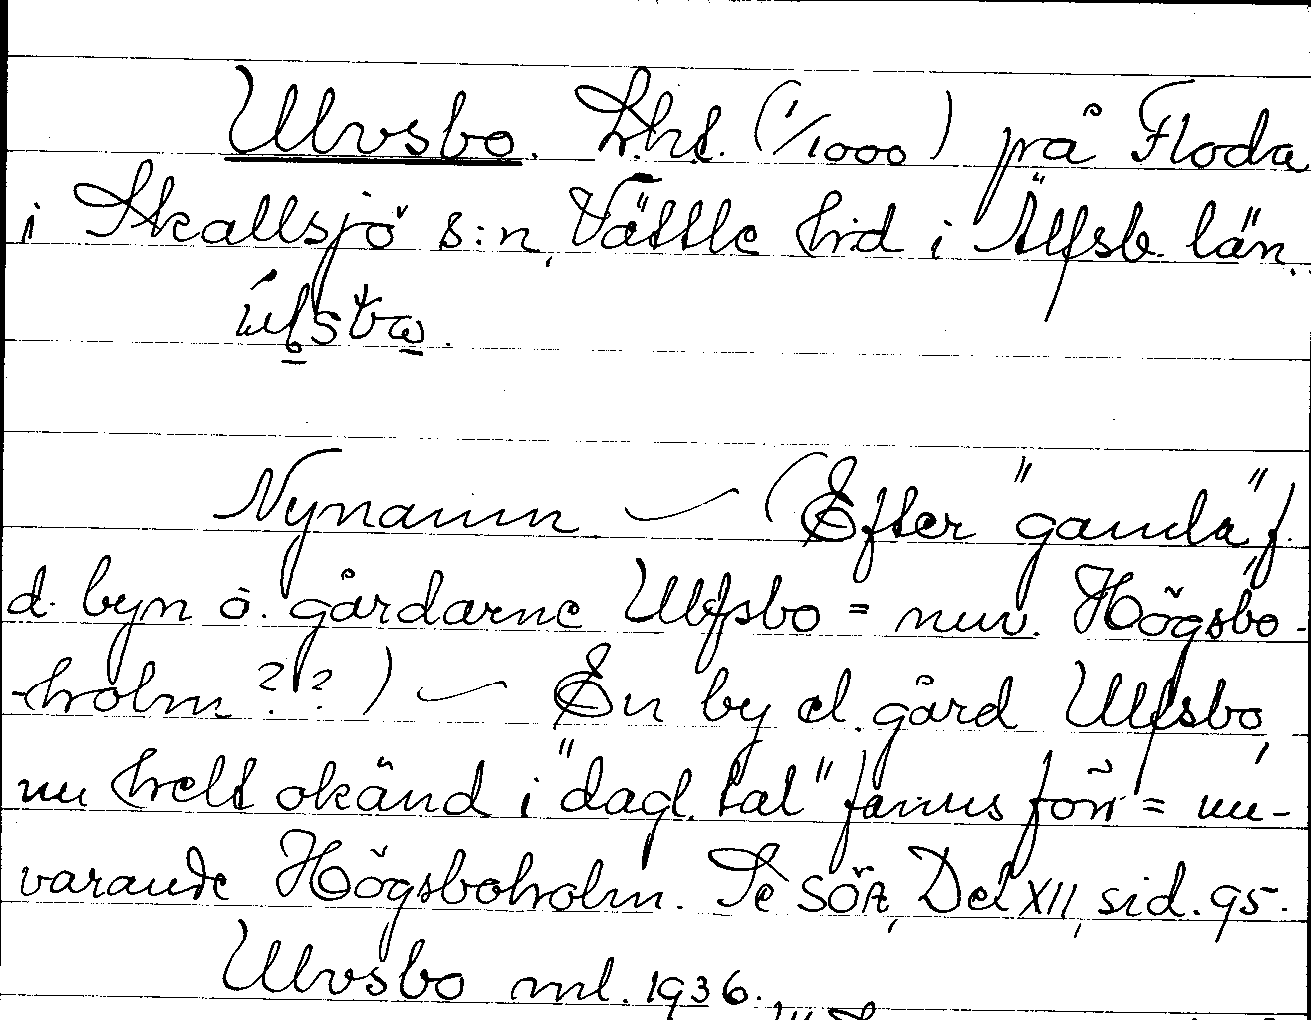 Ulvsbo. Lht. (1/1000) på Floda
i Skallsjö s:n, Vättle hrd i Älfsb. län.
Nynamn — (Efter "gamla" f.
d. byn o. gårdarne Ulfsbo = nuv. Högsbo-
-holm ??) — En by el. gård Ulfsbo,
nu helt okänd i "dagl. tal" fanns förr = nu-
varande Högsboholm. Se SOÄ, Del XII, sid. 95.
Ulvsbo ml. 1936.